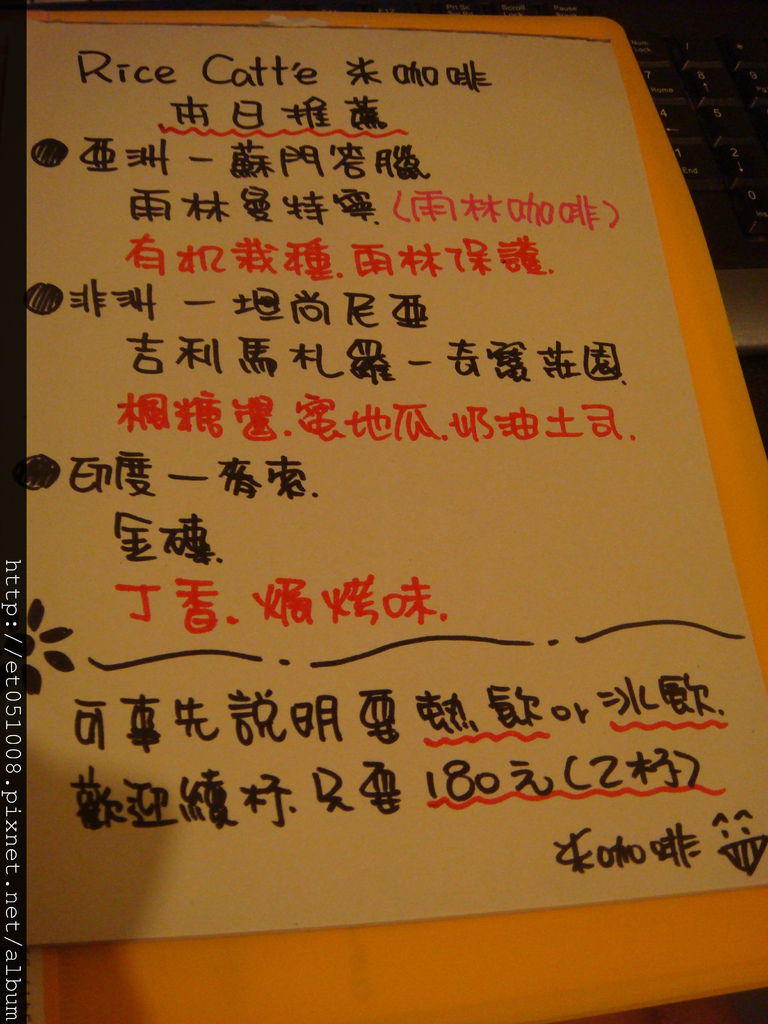 Rice Caff'e 米咖啡
本日推薦
亞洲－蘇門答臘
雨林曼特寧(雨林咖啡)
有机栽種.雨林保護.
非洲－坦尚尼亞
吉利馬札羅－奇寶莊園.
楓糖醬.蜜地瓜.奶油土司.
印度－麥索.
金磚.
丁香.焗烤味.
可事先說明要熱飲or冰飲.
歡迎續杯.只要180元(2杯)
米咖啡
http://et051008.pixnet.net/album
Num Lock
Home
End
7
8
9
4
5
1
2
0
Scroll Lock
Pause